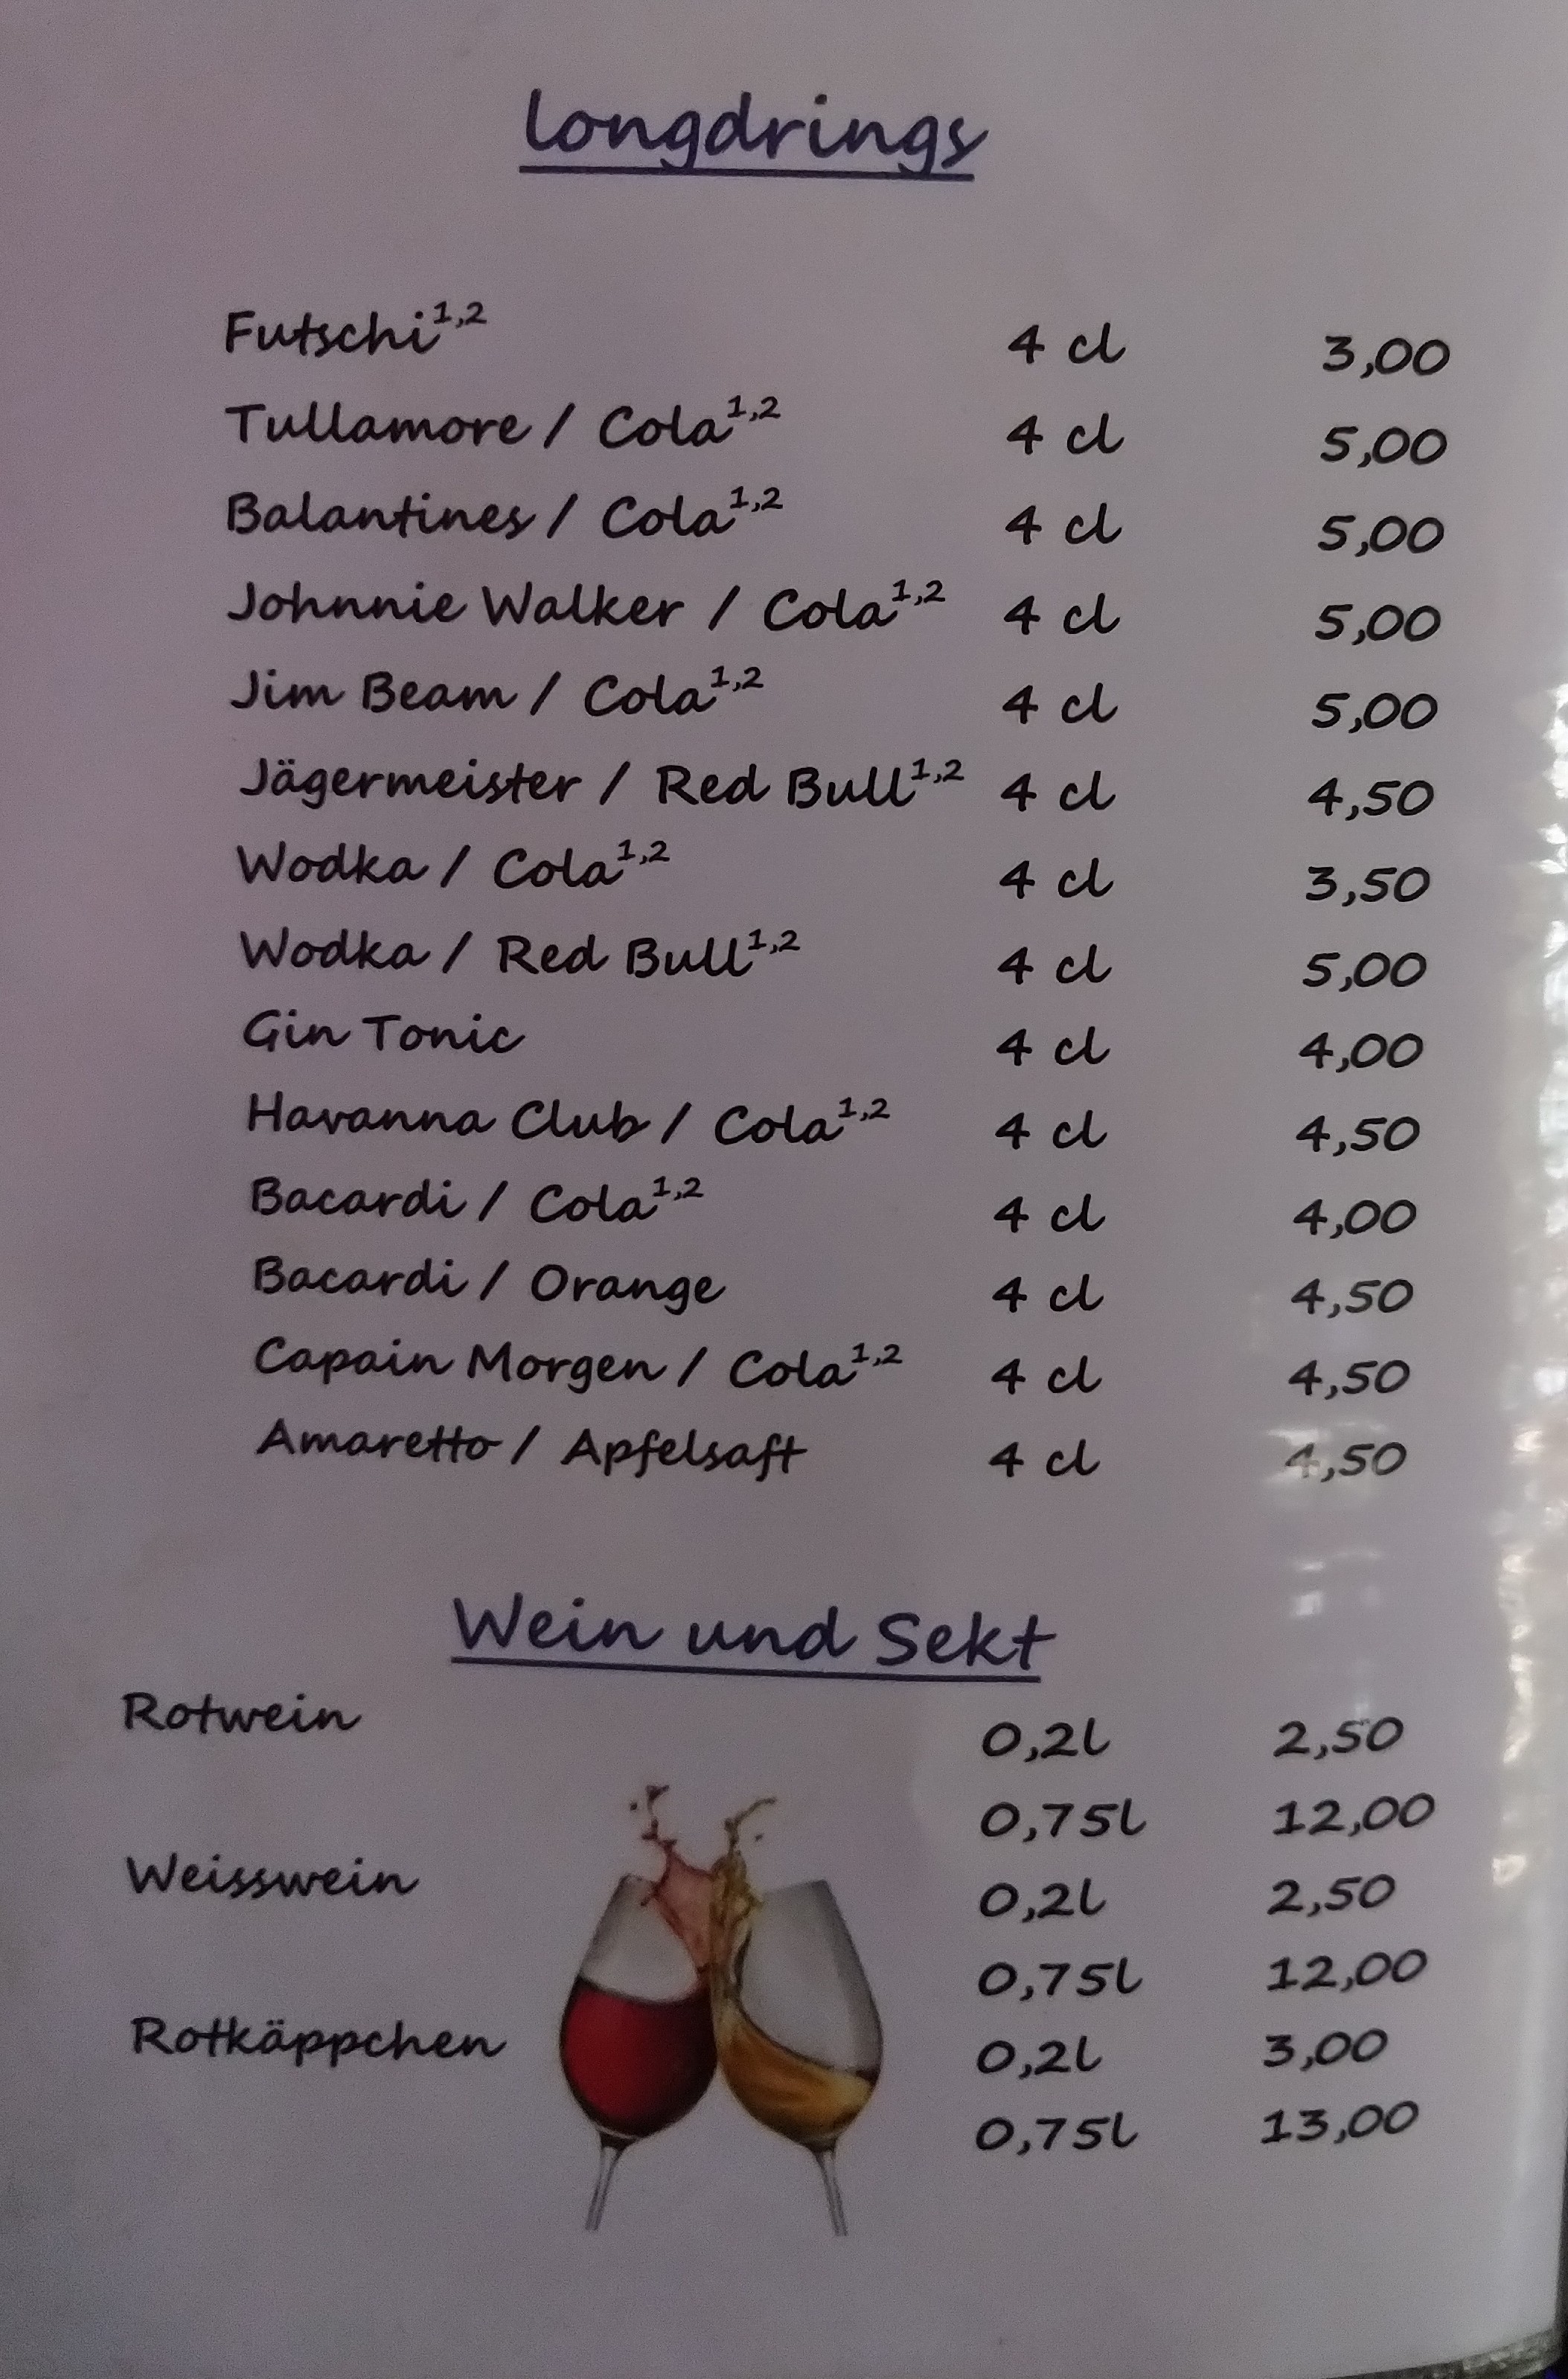 Longdrings
Futschi1,2 4 cl 3,00
Tullamore / Cola1,2 4 cl 5,00
Balantines / Cola1,2 4 cl 5,00
Johnnie Walker / Cola1,2 4 cl 5,00
Jim Beam / Cola1,2 4 cl 5,00
Jägermeister / Red Bull1,2 4 cl 4,50
Wodka / Cola1,2 4 cl 3,50
Wodka / Red Bull1,2 4 cl 5,00
Gin Tonic 4 cl 4,00
Havanna Club / Cola1,2 4 cl 4,50
Bacardi / Cola1,2 4 cl 4,00
Bacardi / Orange 4 cl 4,50
Capain Morgen / Cola1,2 4 cl 4,50
Amaretto / Apfelsaft 4 cl 4,50
Wein und Sekt
Rotwein 0,2l 2,50
0,75l 12,00
Weisswein 0,2l 2,50
0,75l 12,00
Rotkäppchen 0,2l 3,00
0,75l 13,00